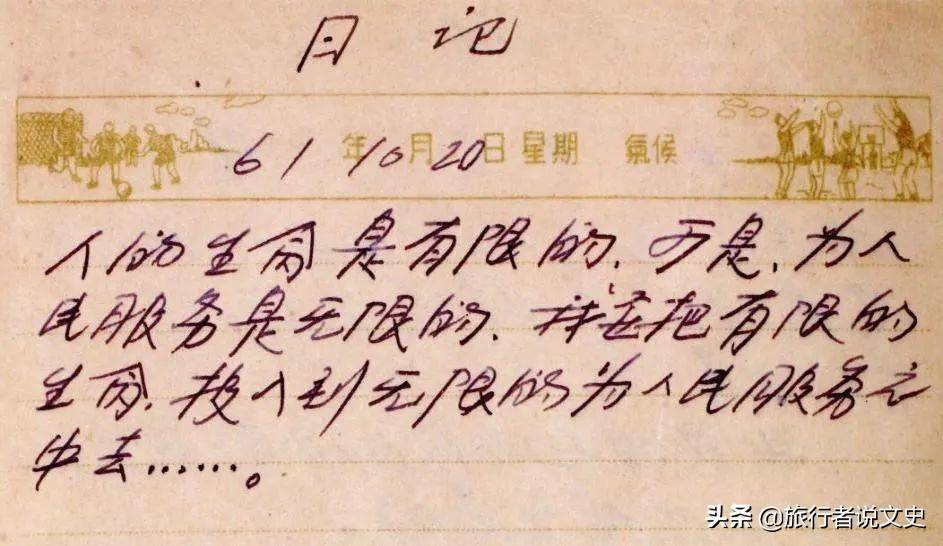 日记
61年10月20日 星期 氣候
人的生命是有限的. 可是, 为人
民服务是无限的. 我要把有限的
生命, 投入到无限的为人民服务之
中去……。
头条 @旅行者说文史